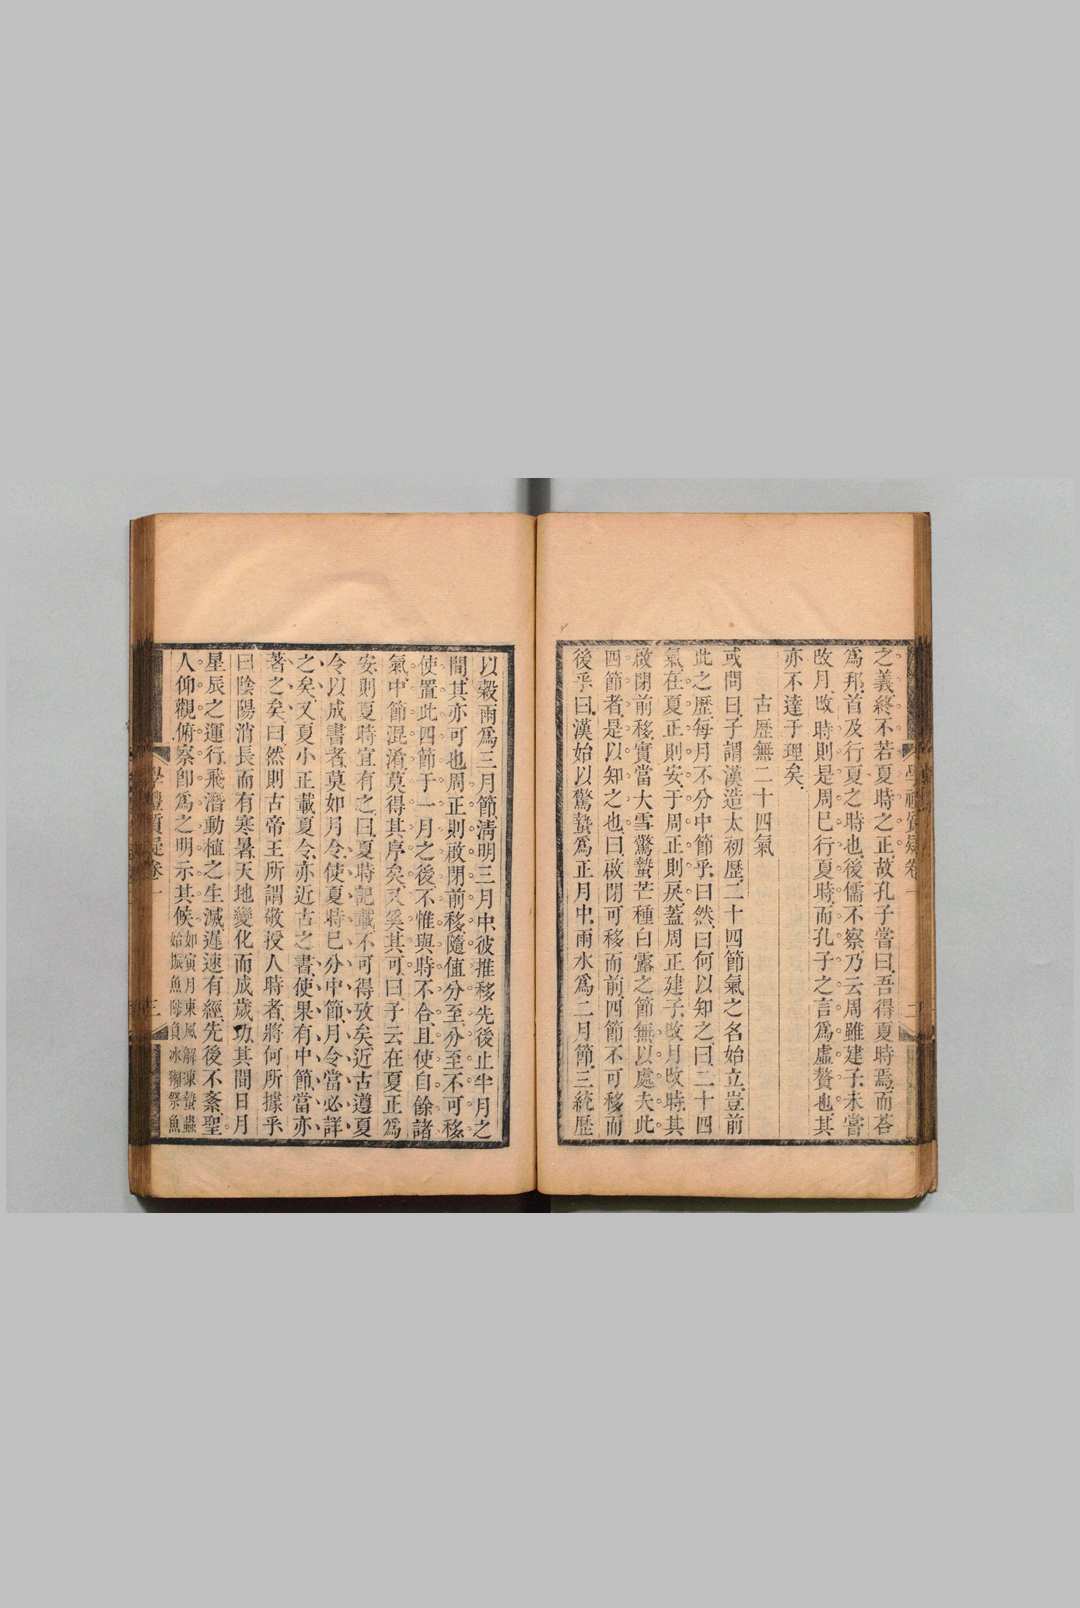 之義終不若夏時之正故孔子嘗曰吾得夏時焉而荅
爲邦首及行夏之時也後儒不察乃云周雖建子未嘗
改月改時則是周巳行夏時而孔子之言爲虛贅也其
亦不達于理矣
古歷無二十四氣
或問曰子謂漢造太初歷二十四節氣之名始立豈前
此之歷每月不分中節乎曰然曰何以知之曰二十四
氣在夏正則安于周正則戾蓋周正建子改月改時其
啟閉前移實當大雪驚蟄芒種白露之節無以處夫此
四節者是以知之也曰啟閉可移而前四節不可移而
後乎曰漢始以驚蟄爲正月中雨水爲二月節三統歷
以穀雨爲三月節清明三月中彼推移先後止半月之
間其亦可也周正則啟閉前移隨值分至分至不可移
使置此四節于一月之後不惟與時不合且使自餘諸
氣中節混淆莫得其序矣又奚其可曰子云在夏正爲
安則夏時宜有之曰夏時記載不可得攷矣近古遵夏
令以成書者莫如月令使夏時巳分中節月令當必詳
之矣又夏小正載夏令亦近古之書使果有中節當亦
著之矣曰然則古帝王所謂敬授人時者將何所據乎
曰陰陽消長而有寒暑天地變化而成歲功其間日月
星辰之運行飛潛動植之生滅遲速有經先後不紊聖
人仰觀俯察卽爲之明示其候如寅月東風解凍蟄蟲
始振魚陟負冰獺祭魚
學禮質疑卷一
三